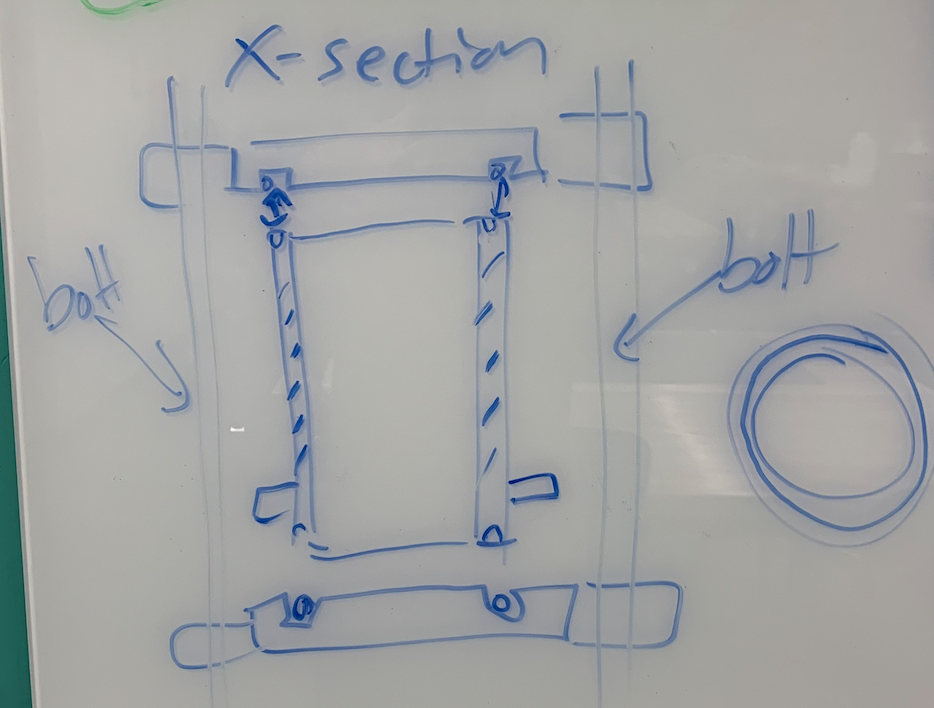 X-section
bolt
bolt